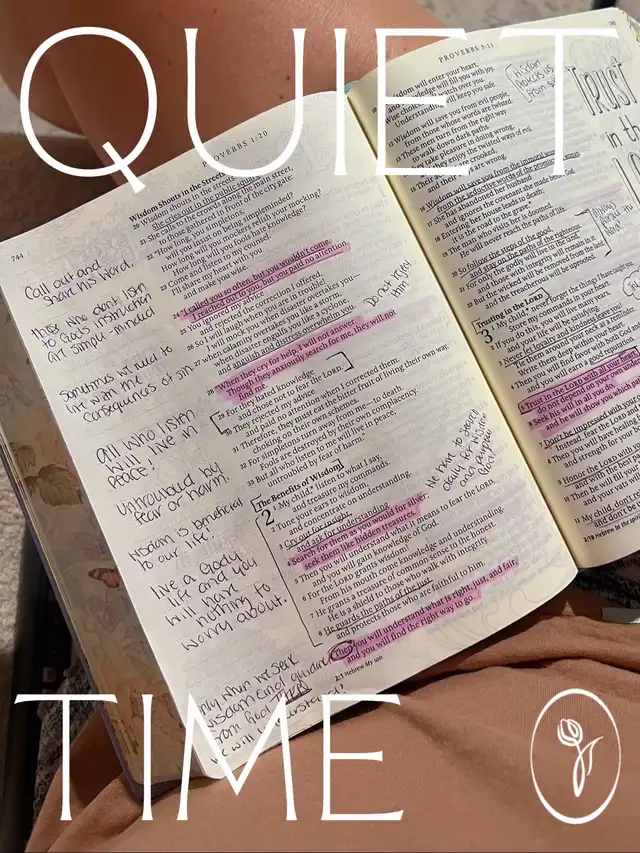 QUIET
PROVERBS 1:20
Wisdom Shouts in the Streets
20 Wisdom shouts in the streets.
She cries out in the public square.
21 She calls to the crowds along the main street,
to those gathered in front of the city gate:
22 "How long, you simpletons,
will you insist on being simpleminded?
How long will you mockers relish your mocking?
How long will you fools hate knowledge?
23 Come and listen to my counsel.
I'll share my heart with you
and make you wise.
24 "I called you so often, but you wouldn't come.
I reached out to you, but you paid no attention.
25 You ignored my advice
and rejected the correction I offered.
26 So I will laugh when you are in trouble!
I will mock you when disaster overtakes you—
27 when calamity overtakes you like a storm,
when disaster engulfs you like a cyclone,
and anguish and distress overwhelm you.
28 "When they cry for help, I will not answer.
Though they anxiously search for me, they will not
find me.
29 For they hated knowledge
and chose not to fear the LORD.
30 They rejected my advice
and paid no attention when I corrected them.
31 Therefore, they must eat the bitter fruit of living their own way,
choking on their own schemes.
32 For simpletons turn away from me—to death.
Fools are destroyed by their own complacency.
33 But all who listen to me will live in peace,
untroubled by fear of harm."
The Benefits of Wisdom
2 My child,* listen to what I say,
and treasure my commands.
2 Tune your ears to wisdom,
and concentrate on understanding.
3 Cry out for insight,
and ask for understanding.
4 Search for them as you would for silver;
seek them like hidden treasures.
5 Then you will understand what it means to fear the LORD,
and you will gain knowledge of God.
6 For the LORD grants wisdom!
From his mouth come knowledge and understanding.
7 He grants a treasure of common sense to the honest.
He is a shield to those who walk with integrity.
8 He guards the paths of the just
and protects those who are faithful to him.
9 Then you will understand what is right, just, and fair,
and you will find the right way to go.
2:1 Hebrew My son
744
Call out and
share his word.
Those who don't listen
to God's instruction
are simple-minded
Sometimes we need to
live with the
consequences of sin.
All who listen
will live in
peace!
Untroubled by
fear or harm.
Wisdom is beneficial
to our life!
Live a Godly
life and you
will have
nothing to
worry about.
only when we seek
wisdom and guidance
from God
we will understand!
Do not reject
Him!
PROVERBS 3:11
wisdom will enter your heart,
and knowledge will fill you with joy.
Wise choices will watch over you.
Understanding will keep you safe.
12 Wisdom will save you from evil people,
from those whose words are twisted.
13 These men turn from the right way
to walk down dark paths.
They take pleasure in doing wrong,
they enjoy the twisted ways of evil.
16 Wisdom will save you from the immoral woman,
from the seductive words of the promiscuous woman.
17 She has abandoned her husband
and ignores the covenant she made before God.
18 Entering her house leads to death;
it is the road to the grave.
19 The man who visits her is doomed.
He will never reach the paths of life.
20 So follow the steps of the good,
and stay on the paths of the righteous.
21 For only the godly will live in the land,
and those with integrity will remain in it.
22 But the wicked will be removed from the land,
and the treacherous will be uprooted.
Trusting in the LORD
3 My child,* never forget the things I have taught you.
Store my commands in your heart.
2 If you do this, you will live many years,
and your life will be satisfying.
3 Never let loyalty and kindness leave you!
Write them deep within your heart.
4 Then you will find favor with both God and
and you will earn a good reputation.
5 Trust in the LORD with all your heart;
do not depend on your own
6 Seek his will in all you do,
and he will show you which
7 Don't be impressed with your
8 Then you will have healing
9 Honor the LORD with
10 Then he will fill your
11 My child, don't
and don't be
Trust
in the
TIME